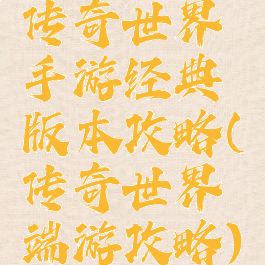 传奇世界
手游经典
版本攻略(
传奇世界
端游攻略)